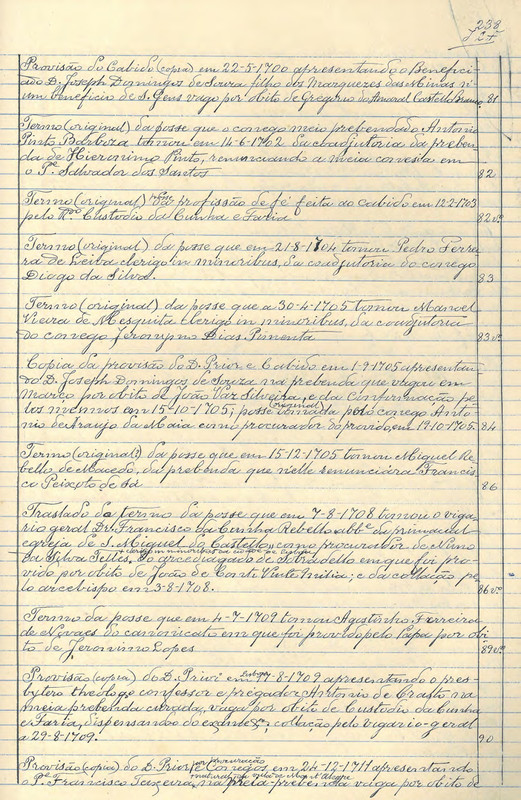 238
Provisão do Cabido (copia) em 22-5-1700 apresentando o Benefici-
ado D. Joseph Domingos de Souza filho dos Marquezes das Minas n'
um beneficio de S. Gens vago por obito de Gregorio do Amaral Castello Branco 81
Termo (original) da posse que o conego meio prebendado Antonio
Pinto Barboza tomou em 14-6-1702 da coadjutoria da preben-
da de Hieronimo Pinto, renunciando a meia conesia em
o Pe. Salvador dos Santos 82
Termo (original) da profissão de fé feita ao Cabido em 12-2-1703
pelo Rdo. Custodio da Cunha e Faria 82 vo
Termo (original) da posse que em 21-8-1704 tomou Pedro Ferrei-
ra de clerigo in minoribus, da coadjutoria do conego
Diogo da Silva. 83
Termo (original) da posse que a 30-4-1705 tomou Manoel
Vieira de Mesquita clerigo in minoribus, da coadjutoria
do conego Jeronymo Dias Pimenta 83 vo
Copia da provisão do D. Prior e Cabido em 1-9-1705 apresentan-
do D. Joseph Domingos de Souza na prebenda que vagou em
março por obito de João Vaz Silveira, e da confirmação pe-
los mesmos em 15-10-1705; posse (original) tomada pelo conego Anto-
nio de Araujo da Maia como procurador do provido, em 19-10-1705. 84
Termo (original) da posse que em 15-12-1705 tomou Miguel Re-
bello de Macedo, da prebenda que n'elle renunciára Francis-
co Peixoto de Sá 86
Traslado do termo da posse que em 7-8-1708 tomou o viga-
rio geral Dr. Francisco da Cunha Rebello abbe. da primacial
egreja de S. Miguel do Castello, como procurador de Nuno
da Silva Telles, do arcediagado de Sobradello em que foi pro-
vido por obito de João de Conti Vintemilia; e da collação pe-
lo arcebispo em 3-8-1708. 86 vo
Termo da posse que em 4-7-1709 tomou Agostinho Ferreira
de Novaes do canonicato em que foi provido pelo Papa por obi-
to de Jeronimo Lopes 89 vo
Provisão (copia) do D. Prior em 11-8-1709 apresentando o pres-
bytero theologo confessor e prégador Antonio de Crasto na
meia prebenda curada, vaga por obito de Custodio da Cunha
e Faria, dispensando do exame; collação pelo vigario-geral
a 29-8-1709. 90
por procuração
Provisão (copia) do D. Prior e Conegos, em 24-12-1711 apresentando
o Pe. Francisco Teixeira, na meia-prebenda vaga por obito de